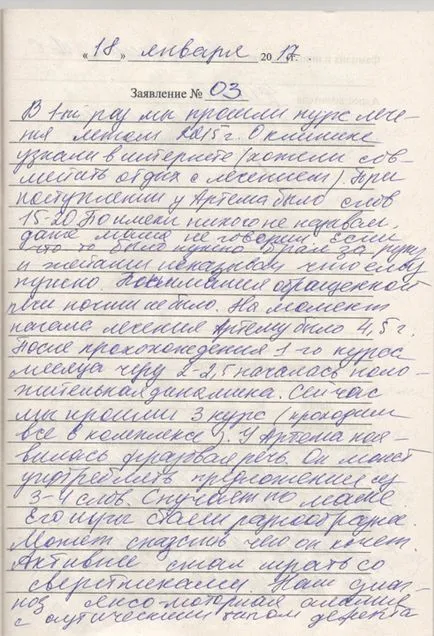 « 18 » января 2017 г.
Заявление № 03
В 1-ый раз мы прошли курс лече-
ния летом 2015 г. О клинике
узнали в интернете (хотели сов-
мещать отдых с лечением). При
поступлении у Артема было слов
15-20. По имени никого не называл,
даже мама не говорил. Если
что то было нужно брал за руку
и жестами показывал что ему
нужно. Понимания обращенной
речи почти не было. На момент
начала лечения Артему было 4,5 г.
После прохождения 1-го курса
месяца через 2-2,5 началась поло-
жительная динамика. Сейчас
мы прошли 3 курс (проходим
все в комплексе). У Артема поя-
вилась фразовая речь. Он может
употреблять предложения из
3-4 слов. Скучает по маме.
Его игры стали разнообразнее.
Может сказать чего он хочет.
Активнее стал играть со
сверстниками. Наш диаг-
ноз сенсо-моторная алалия
с аутическим типом дефекта